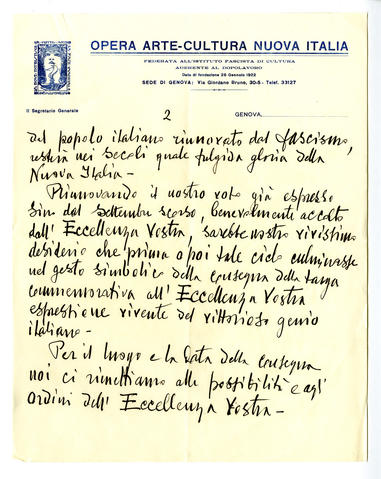 OPERA ARTE-CULTURA NUOVA ITALIA
FEDERATA ALL'ISTITUTO FASCISTA DI CULTURA
ADERENTE AL DOPOLAVORO
Data di fondazione 28 Gennaio 1922
SEDE DI GENOVA: Via Giordano Bruno, 30-5 - Telef. 33127
Il Segretario Generale
2
GENOVA,
del popolo italiano rinnovato dal fascismo,
resterà nei secoli quale fulgida gloria della
Nuova Italia -
Rinnovando il nostro voto già espresso
sin dal settembre scorso, benevolmente accolto
dall'Eccellenza Vostra, sarebbe nostro vivissimo
desiderio che prima o poi tale ciclo culminasse
nel gesto simbolico della consegna della targa
commemorativa all'Eccellenza Vostra
espressione vivente del vittorioso genio
italiano -
Per il luogo e la data della consegna
noi ci rimettiamo alle possibilità e agl'
ordini dell'Eccellenza Vostra -